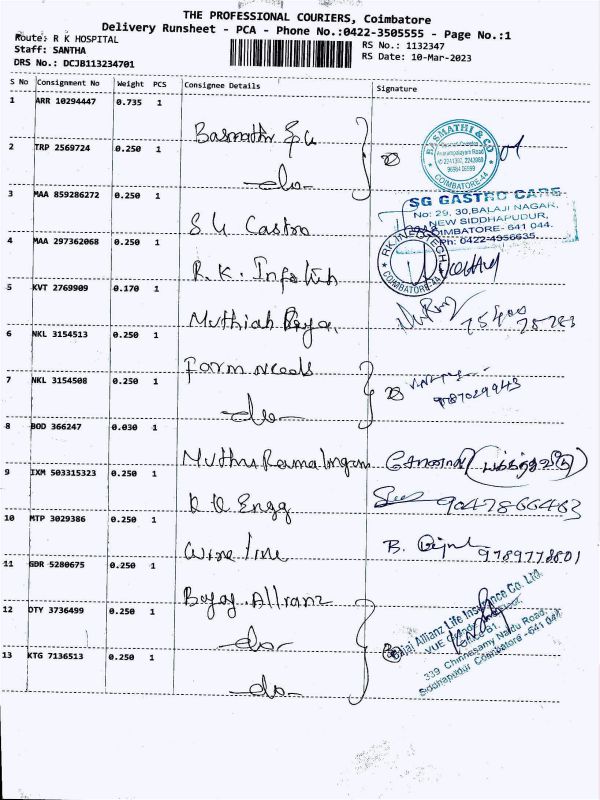 THE PROFESSIONAL COURIERS, Coimbatore
Delivery Runsheet - PCA - Phone No.:0422-3505555 - Page No.:1
Route: R K HOSPITAL
Staff: SANTHA
DRS No.: DCJB113234701
RS No.: 1132347
RS Date: 10-Mar-2023
S No Consignment No Weight PCS Consignee Details Signature
1 ARR 10294447 0.735 1
Basmathi & Co
2 TRP 2569724 0.250 1
-do-
BASMATHI & CO
COIMBATORE-44
3 MAA 859286272 0.250 1
S.G Gastro
SG GASTRO CARE
No: 29, 30, BALAJI NAGAR,
NEW SIDDHAPUDUR,
COIMBATORE- 641 044.
Ph: 0422-4956635.
4 MAA 297362068 0.250 1
R.K. Infotech
RK INFOTECH
COIMBATORE-44
5 KVT 2769909 0.170 1
Muthiah
6 NKL 3154513 0.250 1
Farm needs
7 NKL 3154508 0.250 1
-do-
9787029943
8 BOD 366247 0.030 1
Muthu Ramalingam
9 IXM 503315323 0.250 1
Engg
9047866463
10 MTP 3029386 0.250 1
Wine line
B.
9789778801
11 GDR 5280675 0.250 1
Bajaj Allianz
12 OTY 3736499 0.250 1
-do-
13 KTG 7136513 0.250 1
-do-
Bajaj Allianz Life Insurance Co. Ltd.
339 Chinnesamy Naidu Road,
Siddhapudur Coimbatore - 641 044